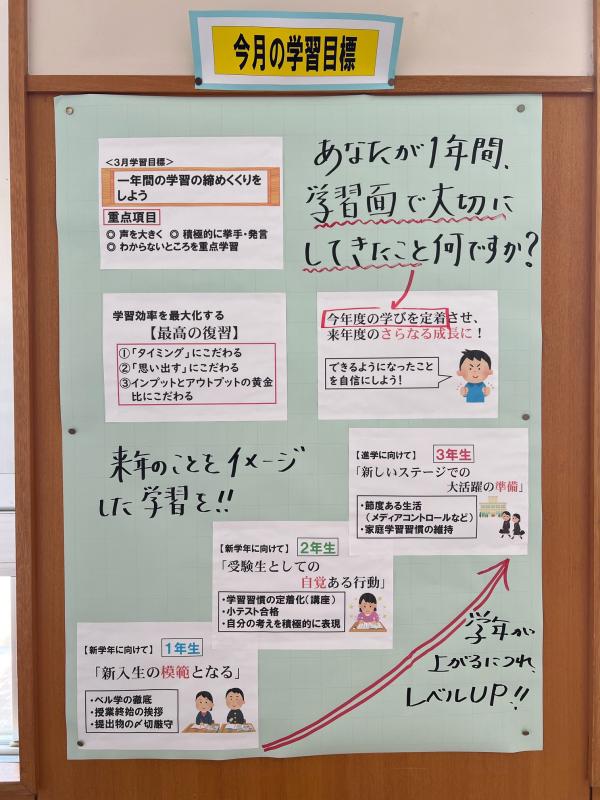 今月の学習目標
<3月学習目標>
一年間の学習の締めくくりを
しよう
重点項目
◎ 声を大きく ◎ 積極的に挙手・発言
◎ わからないところを重点学習
あなたが1年間、
学習面で大切に
してきたこと何ですか?
学習効率を最大化する
【最高の復習】
①「タイミング」にこだわる
②「思い出す」にこだわる
③インプットとアウトプットの黄金
比にこだわる
今年度の学びを定着させ、
来年度のさらなる成長に!
できるようになったこと
を自信にしよう!
来年のことをイメージ
した学習を!!
【進学に向けて】 3年生
「新しいステージでの
大活躍の準備」
・節度ある生活
(メディアコントロールなど)
・家庭学習習慣の維持
【新学年に向けて】 2年生
「受験生としての
自覚ある行動」
・学習習慣の定着化(講座)
・小テスト合格
・自分の考えを積極的に表現
【新学年に向けて】 1年生
「新入生の模範となる」
・ベル学の徹底
・授業終始の挨拶
・提出物の〆切厳守
学年が
上がるにつれ、
レベルUP!!